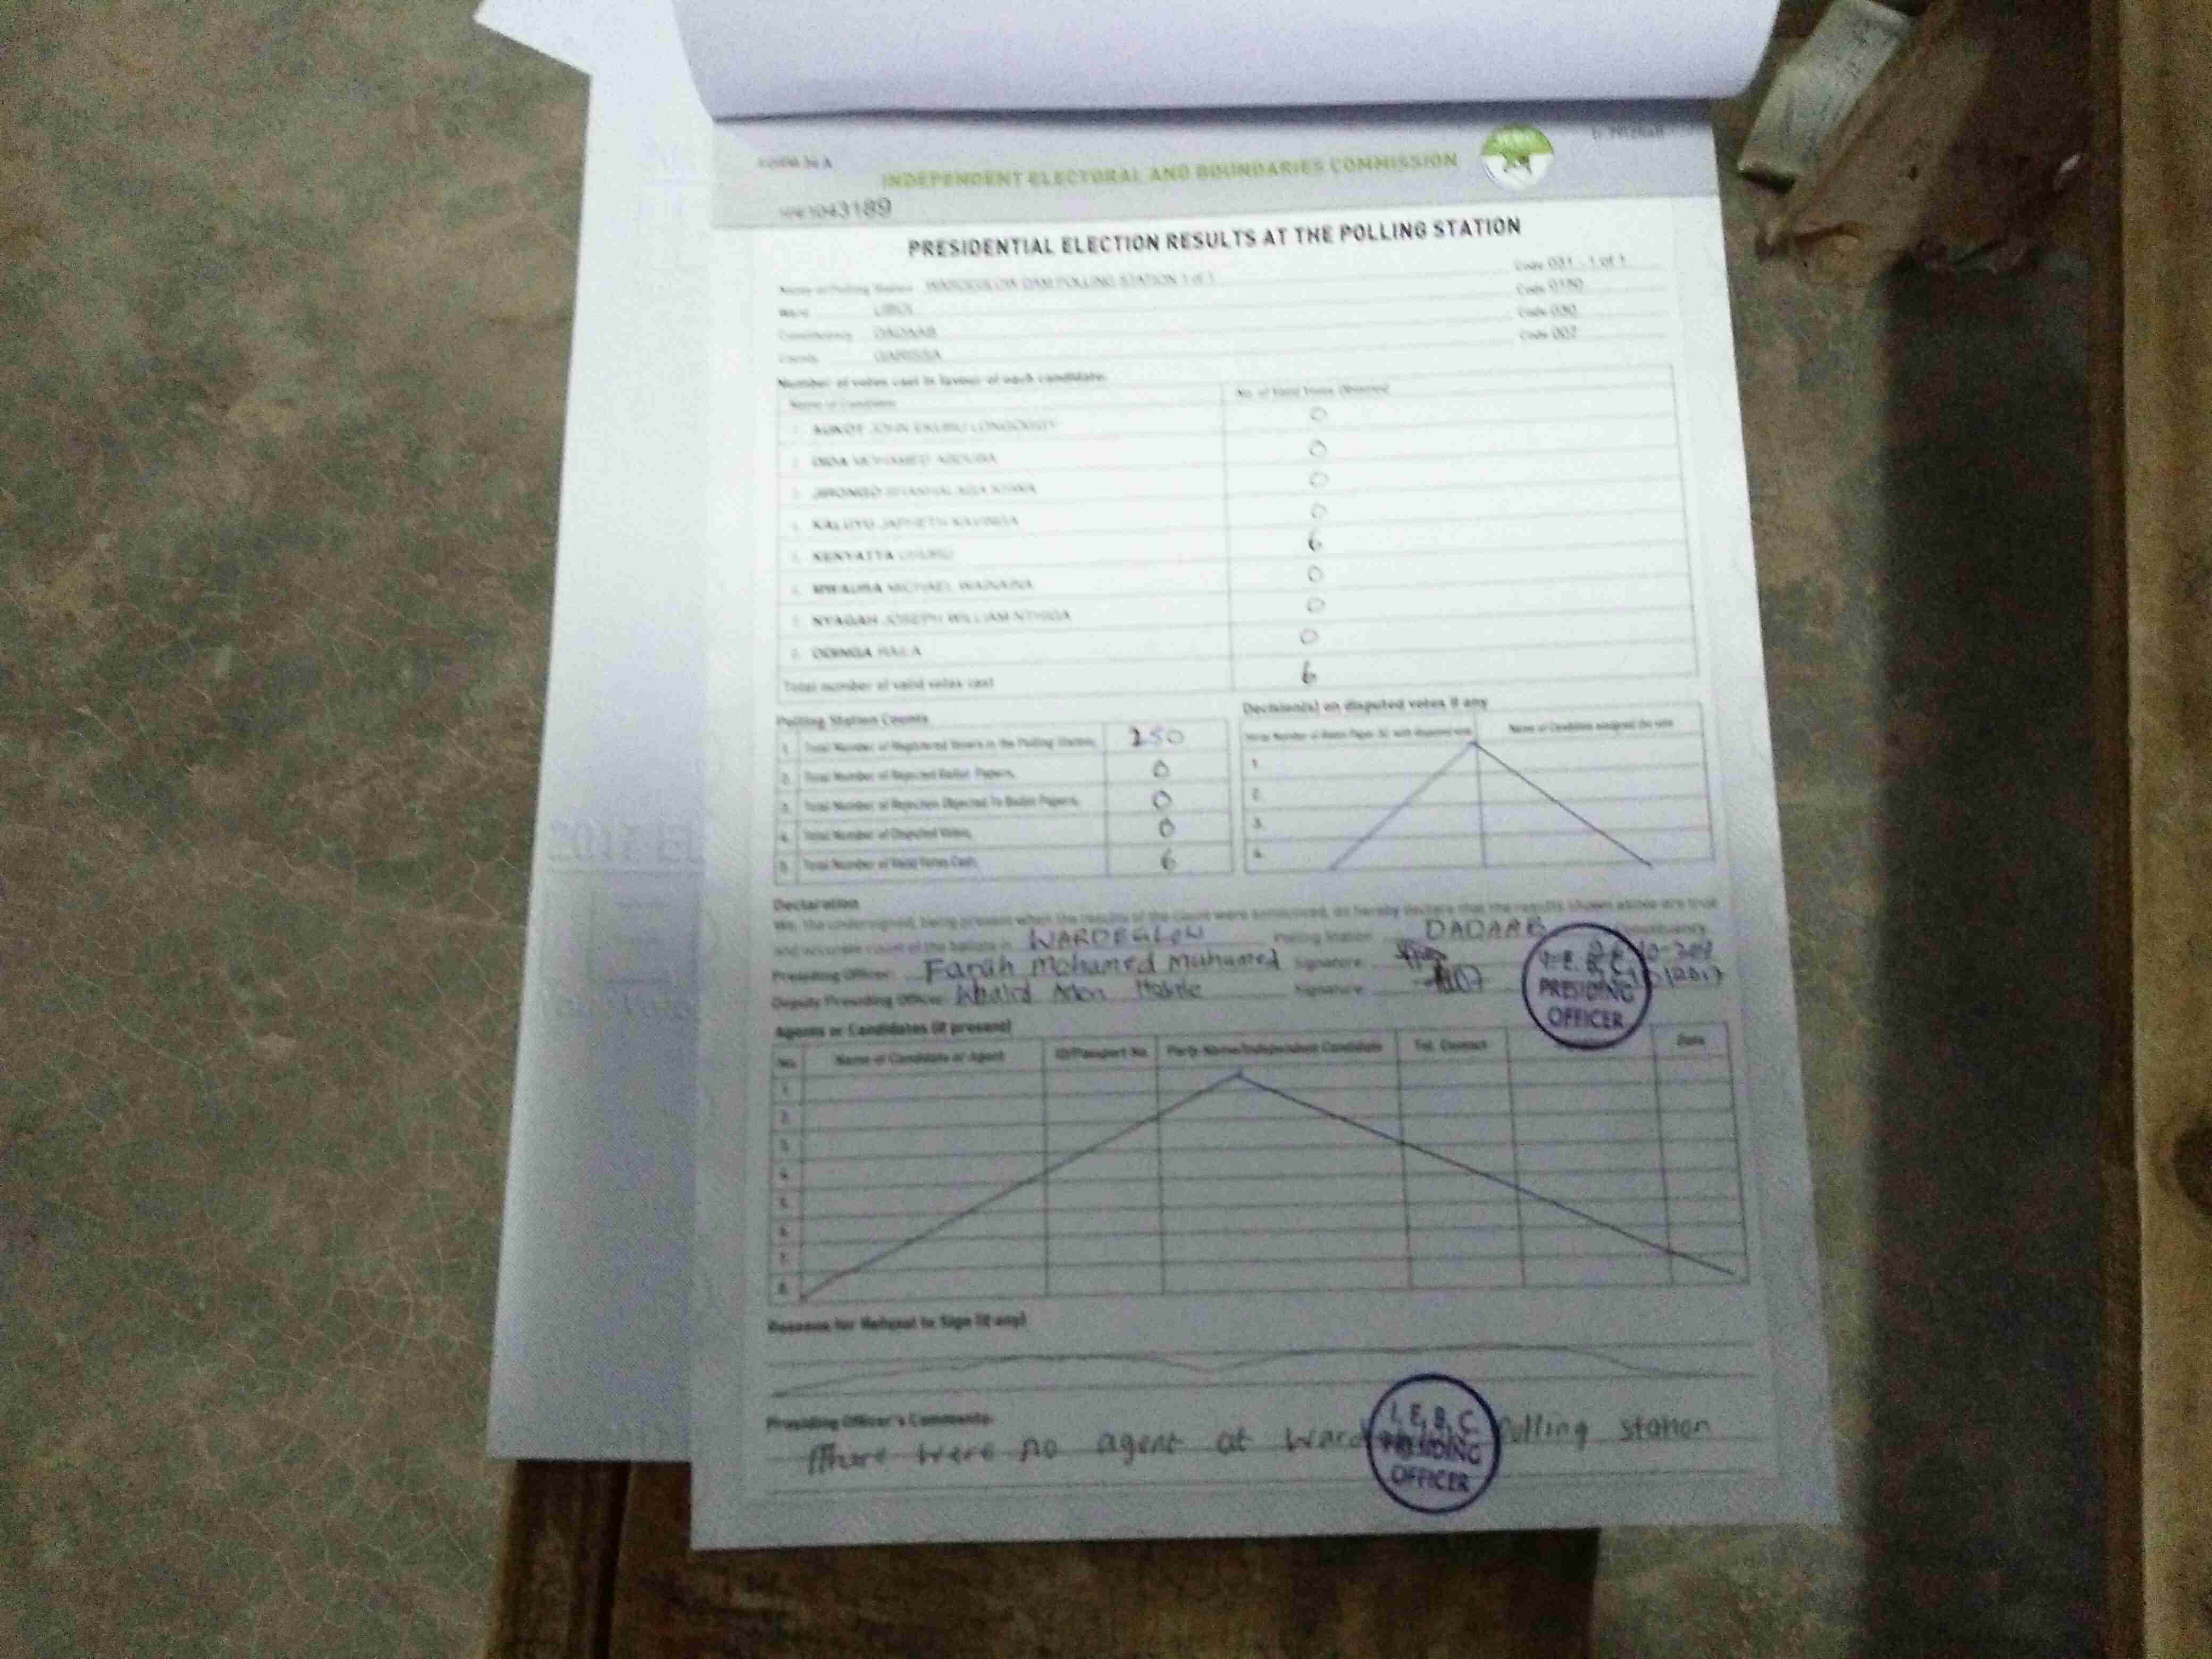 FORM 34 A
INDEPENDENT ELECTORAL AND BOUNDARIES COMMISSION
1043189
PRESIDENTIAL ELECTION RESULTS AT THE POLLING STATION
Name of Polling Station WARDEGLOW DAM POLLING STATION 1 of 1 Code 031 1 of 1
Ward LIBOI Code 0150
Constituency DADAAB Code 030
County GARISSA Code 007
Number of votes cast in favour of each candidate:
Name of Candidate No. of Valid Votes Obtained
1. AUKOT JOHN EKURU LONGOGGY 0
2. DIDA MOHAMED ABDUBA 0
3. JIRONGO SHAKHALAGA KHWA 0
4. KALUYU JAPHETH KAVINGA 0
5. KENYATTA UHURU 6
6. MWAURA MICHAEL WAINAINA 0
7. NYAGAH JOSEPH WILLIAM NTHIGA 0
8. ODINGA RAILA 0
Total number of valid votes cast 6
Polling Station Counts
1. Total Number of Registered Voters in the Polling Station 250
2. Total Number of Rejected Ballot Papers 0
3. Total Number of Rejection Objected To Ballot Papers 0
4. Total Number of Disputed Votes 0
5. Total Number of Valid Votes Cast 6
Decision(s) on disputed votes if any
Serial Number of Ballot Paper (s) with disputed vote Name of Candidate assigned the vote
1.
2.
3.
4.
Declaration
We, the undersigned, being present when the results of the count were announced, do hereby declare that the results shown above are true
and accurate count of the ballots in WARDEGLOW Polling Station DADAAB Constituency
Presiding Officer: Farah Mohamed Muhumed Signature
Deputy Presiding Officer: Khalid Aden Signature
I. E. B. C.
PRESIDING
OFFICER
Agents or Candidates (if present)
No. Name of Candidate or Agent ID/Passport No. Party Name/Independent Candidate Tel. Contact Date
1.
2.
3.
4.
5.
6.
7.
8.
Reasons for Refusal to Sign (if any)
Presiding Officer's Comments:
There were no agent at Polling station
I. E. B. C.
PRESIDING
OFFICER